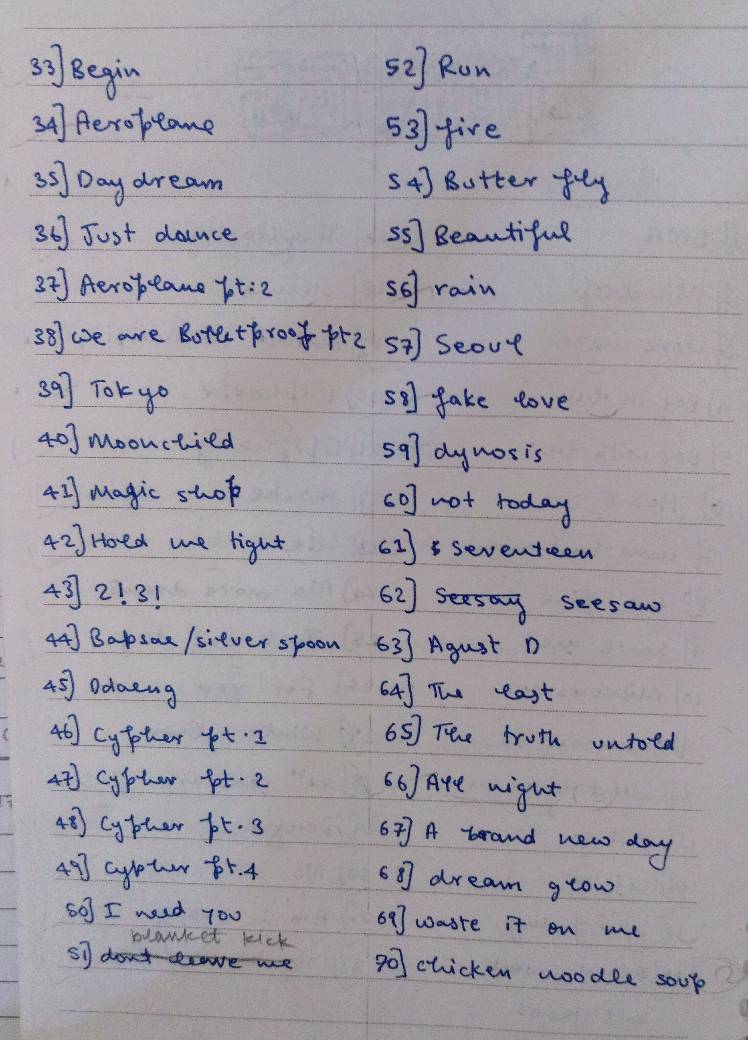 33] Begin
34] Aeroplane
35] Day dream
36] Just dance
37] Aeroplane pt:2
38] we are Bulletproof pt2
39] Tokyo
40] Moonchild
41] Magic shop
42] Hold me tight
43] 2!3!
44] Bapsae/silver spoon
45] Ddaeng
46] Cypher pt.1
47] Cypher pt.2
48] Cypher pt.3
49] Cypher pt.4
50] I need you
blanket kick
51] dont leave me
52] Run
53] fire
54] Butter fly
55] Beautiful
56] rain
57] Seoul
58] fake love
59] dynosis
60] not today
61] seventeen
62] Seesay seesaw
63] Agust D
64] The last
65] The truth untold
66] All night
67] A brand new day
68] dream glow
69] waste it on me
70] chicken noodle soup